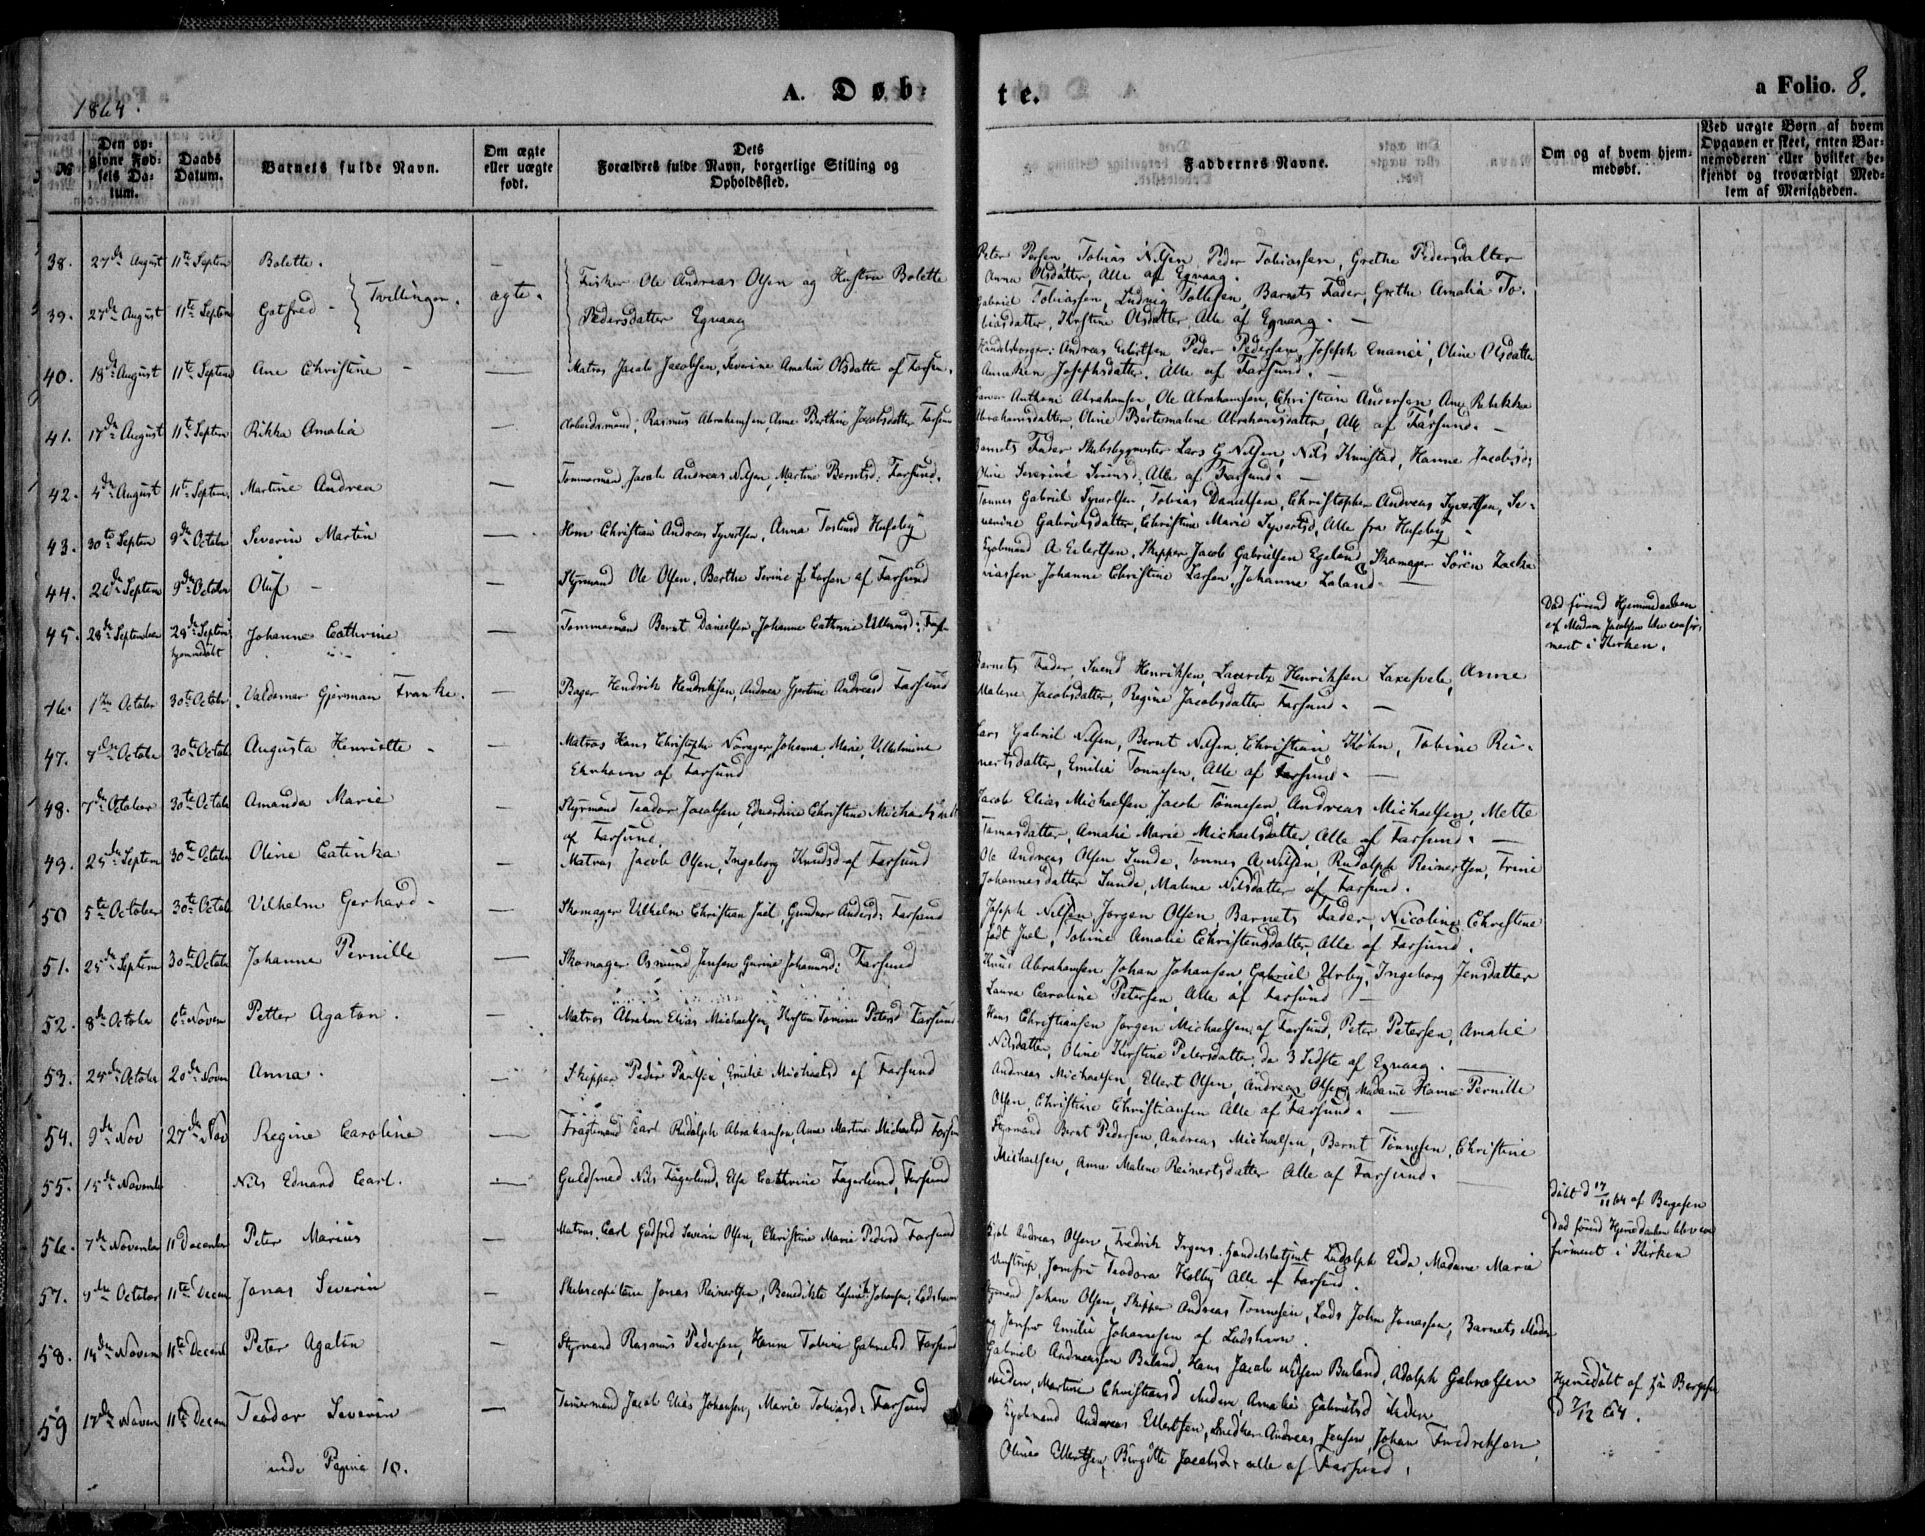 1864.
A. Døb-
te.
a Folio. 8.
No
Den opgivne Fødsels Datum.
Daabs Datum.
Barnets fulde Navn.
Om ægte eller uægte født.
Dets Forældres fulde Navn, borgerlige Stilling og Opholdssted.
Faddernes Navne.
Om og af hvem hjemmedøbt.
Ved uægte Børn af hvem Opgaven er skeet, enten Barnemoderen eller hvilket bekjendt og troværdigt Medlem af Menigheden.
38. 27de August 11te Septem Bolette.
Tvillinger. ægte. Fisker Ole Andreas Olsen og Hustru Bolette
Pedersdatter Egvaag
Tobias Nilsen, Peder Tobiassen, Grethe Pedersdatter
Anna Olsdatter, Alle af Egvaag.
39. 27de August 11te Septem Gotfred
Gabriel Tobiassen, Ludvig Tollefsen, Barnets Fader, Grethe Amalia To-
biasdatter, Kirstine Olsdatter, Alle af Egvaag.
40. 18de August 11te Septem Ane Christine — Matros Jacob Jacobsen, Severine Amalia Olsdatter af Farsun.
Andreas Eilertsen Peder Pedersen, Joseph Enanei, Oline Olsdatter
Anneken Josephsdatter. Alle af Farsund.
41. 17de August 11te Septem Rikka Amalia — Arbeidsmand, Rasmus Abrahamsen Anne Berthine Jacobsdatter Farsun
Anthoni Abrahamsen, Ole Abrahamsen, Christian Andersen, Ane Rebekka
Abrahamsdatter, Oline Bertemalene Abrahamsdatter, Alle af Farsund.
42. 4de August 11te Septem. Martine Andrea — Tømmermand Jacob Andreas Nilsen, Martine Berntsd: Farsund.
Barnets Fader, Skibsbygmester Lars G Nilsen, Nils Knustad, Hanne Jacobsd:
Oline Severine, Alle af Farsund.
43. 30te Septem 9de October Severin Martin — Christian Andreas Syvertsen, Anna Huseby
Tønnes Gabriel Syvertsen, Tobias Danielsen, Christopher Andreas Syvertsen, Se-
verine Gabrielsdatter, Christine Marie Syvertsd, Alle fra Huseby
44. 26de Septem 9de October Oluf — Styrmand Ole Olsen, Berthe Serine f. Larsen af Farsund
Kjøbmand A Eilertsen, Skipper Jacob Gabrielsen Egeland, Skomager Søren Zacha
riassen Johanne Christine Larsen, Johanne Laland.
45. 28de September 29de Septem hjemmedøbt Johanne Cathrine — Tømmermand Bernt Danielsen, Johanne Cathrine
af Madam Jacobsen blev confir-
meret i Kirken.
46. 1ste October 30te October Valdemar Gjerman Franke. — Bager Hendrik Hendriksen, Andrea Gjertine Andreasd Farsund
Barnets Fader, Svend Henriksen, Lauretz Henriksen, Anne
Malene Jacobsdatter, Regine Jacobsdatter Farsund.
47. 7de October 30te Octob Augusta Henriette — Matros Hans Christopher Johanna Marie Vilhelmine
af Farsund
Lars Gabriel Nilsen, Bernt Nilsen, Christian Køhn, Tobine Rei-
nertsdatter, Emilie Tønnesen, Alle af Farsund.
48. 7de October 30te Octob Amanda Marie — Styrmand Teodor Jacobsen, Eduardine Christine Michaels
af Farsund
Jacob Elias Michaelsen Jacob Tønnesen, Andreas Michaelsen, Mette
Tomasdatter, Amalie Marie Michaelsdatter, Alle af Farsund.
49. 25de Septem 30te October Oline Catinka — Matros Jacob Olsen, Ingeborg Knudsd af Farsund
Ole Andreas Olsen Sunde, Tønnes A Nilsen Rudolph Reinertsen, Trine
Johannesdatter Sunde, Malene Nilsdatter af Farsund.
50 5te October 30te Octob Vilhelm Gerhard — Skomager Vilhelm Christian Juel, Gunder Andersd. Farsund
Joseph Nilsen, Jørgen Olsen, Barnets Fader, Nicoline Christine
født Juel, Tobine Amalie Christensdatter, Alle af Farsund.
51. 25de Septem 30te Octob Johanne Pernille — Skomager Osmund Jensen Gurine Johannesd: Farsund
Knud Abrahamsen, Johan Johansen, Gabriel, Ingeborg Jensdatter
Laura Caroline Petersen, Alle af Farsund
52. 8de October 6te Novem Petter Agaton. — Matros Abraham Elias Michaelsen, Kirsten Tomine Petersd Farsund
Hans Christiansen, Jørgen Michaelsen, af Farsund, Peter Petersen, Amalie
Nilsdatter, Oline Kirstine Petersdatter, de 3 Sidste af Egvaag.
53. 24de October 20de Novem Anna. — Skipper Peder Paulsen, Emilie Michaelsd af Farsund
Andreas Michaelsen, Ellert Olsen, Andreas Olsen, Madame Hanne Pernille
Olsen, Christine Christiansen Alle af Farsund.
54. 9de Nov 27de Nov Regine Caroline — Fragtmand Carl Rudolph Abrahamsen, Anne Martine Michaelsd Farsun
Styrmand Bernt Pedersen, Andreas Michaelsen, Bernt Tønnesen, Christine
Michaelsen, Anne Malene Reinertsdatter Alle af Farsund.
55. 15de Novembr Nils Edvard Carl. — Guldsmed Nils Fagerlund, Else Cathrine Fagerlund, Farsund
døbt d 17/11 64 af Bergesen
56. 7de Novembr 11 December Peter Marius — Matros Carl Gudfred Severin Olsen, Christine Marie Pedersd Farsund
Andreas Olsen, Fredrik Irgens, Handelsbetjent Ludolph Eide, Madame Marie
Jomfru Teodora Holby Alle af Farsund.
firmeret i Kirken
57. 9de October 11te Decem Jonas Severin — Skibscapitain Jonas Reinertsen, Benedikte Johansen, Lodshavn
Johan Olsen, Skipper Andreas Tønnesen, Lods John Jonassen, Barnets Moder
og Jomfru Emilie Johannesen af Lodshavn.
58. 14de Novem 11te Decemb Peter Agaton — Styrmand Rasmus Pedersen, Hanne Tobine Gabrielsd Farsund
Gabriel Andreassen Buland, Hans Jacob Nilsen Buland, Adolph Gabrielsen
Martine Christiansd, Amalie Gabrielsd
Hjemmedøbt af Bergesen
d 7/12 64.
59 17de Novem 11te Decem Teodor Severin — Tømermand Jacob Elias Johansen, Marie Tobiasd: Farsund
Kjøbmand Andreas Ellertsen, Snedker Andreas Jensen, Johan Fredriksen,
Olines Ellertsen, Birgitte Jacobsd: alle af Farsund.
vide Pagina 10.